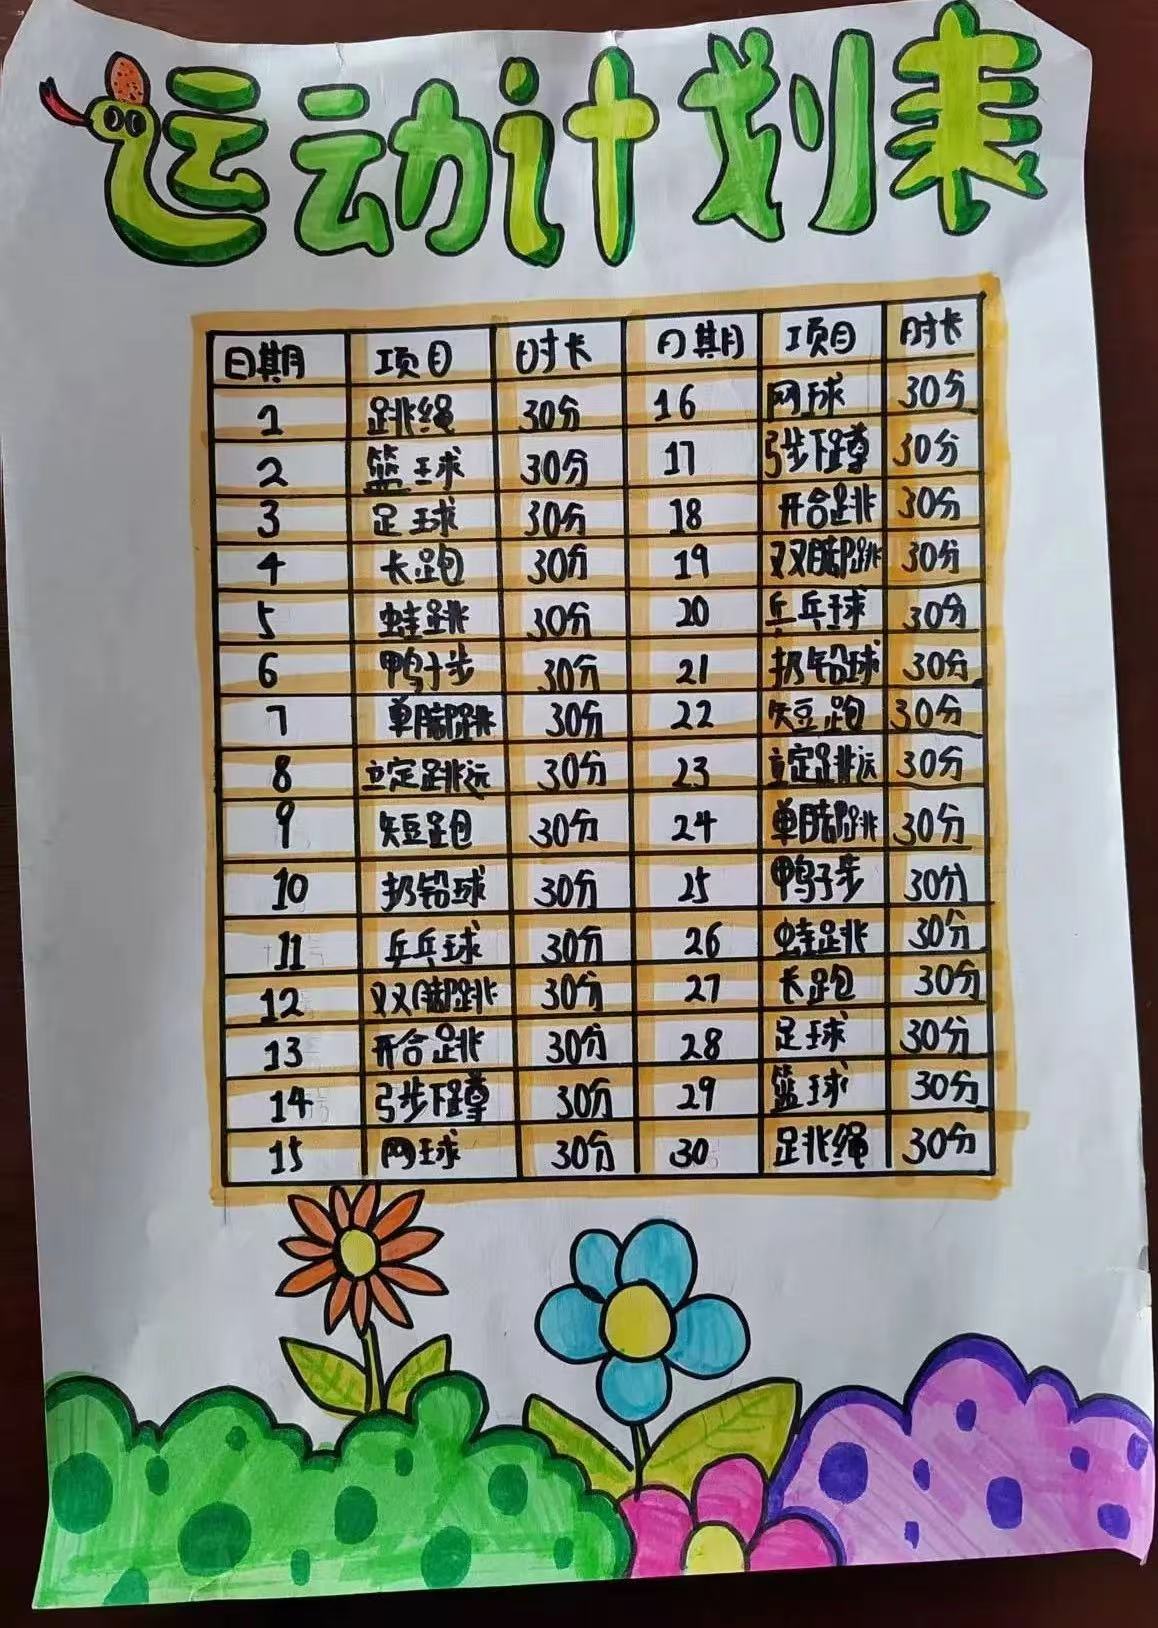 运动计划表
日期 项目 时长 日期 项目 时长
1 跳绳 30分 16 网球 30分
2 篮球 30分 17 弓步下蹲 30分
3 足球 30分 18 开合跳 30分
4 长跑 30分 19 双脚跳 30分
5 蛙跳 30分 20 乒乓球 30分
6 鸭子步 30分 21 扔铅球 30分
7 单脚跳 30分 22 短跑 30分
8 立定跳远 30分 23 立定跳远 30分
9 短跑 30分 24 单脚跳 30分
10 扔铅球 30分 25 鸭子步 30分
11 乒乓球 30分 26 蛙跳 30分
12 双脚跳 30分 27 长跑 30分
13 开合跳 30分 28 足球 30分
14 弓步下蹲 30分 29 篮球 30分
15 网球 30分 30 跳绳 30分